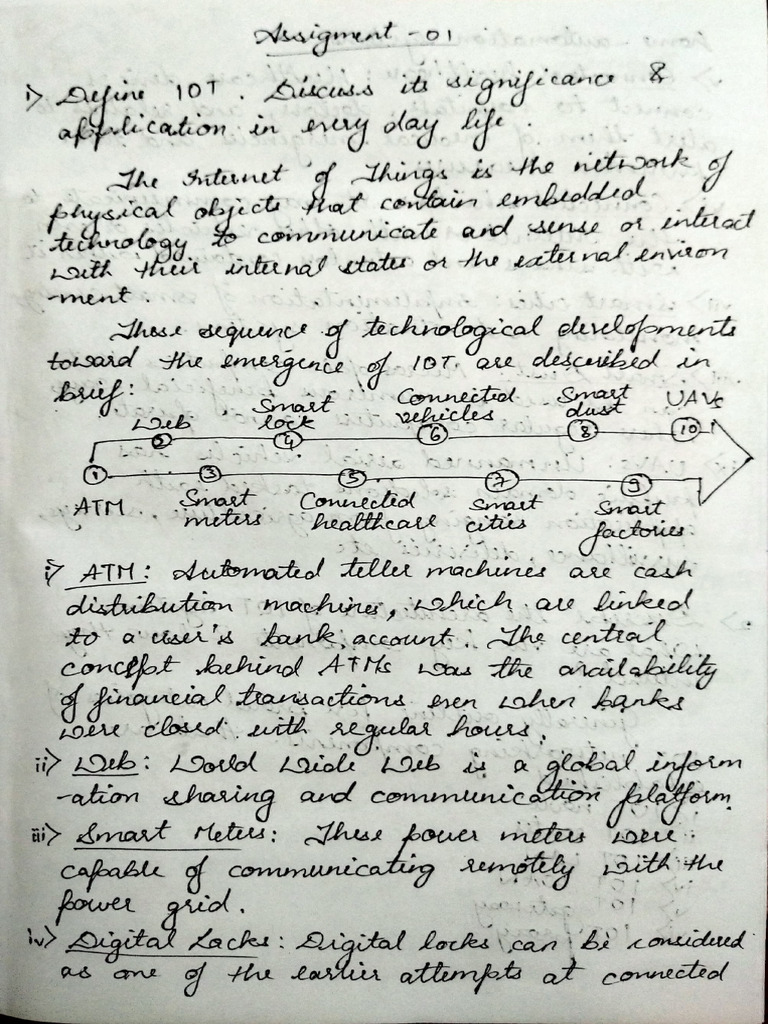 Assigment - 01
i> Define IOT. Discuss its significance &
application in every day life.
The Internet of Things is the network of
physical objects that contain embedded
technology to communicate and sense or interact
with their internal states or the external environ
-ment.
These sequence of technological developments
toward the emergence of IOT are described in
brief:
Web Smart lock Connected vehicles Smart dust UAVs
② ④ ⑥ ⑧ ⑩
① ③ ⑤ ⑦ ⑨
ATM Smart meters Connected healthcare Smart cities Smart factories
i> ATM: Automated teller machines are cash
distribution machines, which are linked
to a user's bank account. The central
concept behind ATMs was the availability
of financial transactions even when banks
were closed with regular hours.
ii> Web: World Wide Web is a global inform
-ation sharing and communication platform.
iii> Smart Meters: These power meters were
capable of communicating remotely with the
power grid.
iv> Digital Locks: Digital locks can be considered
as one of the earlier attempts at connected